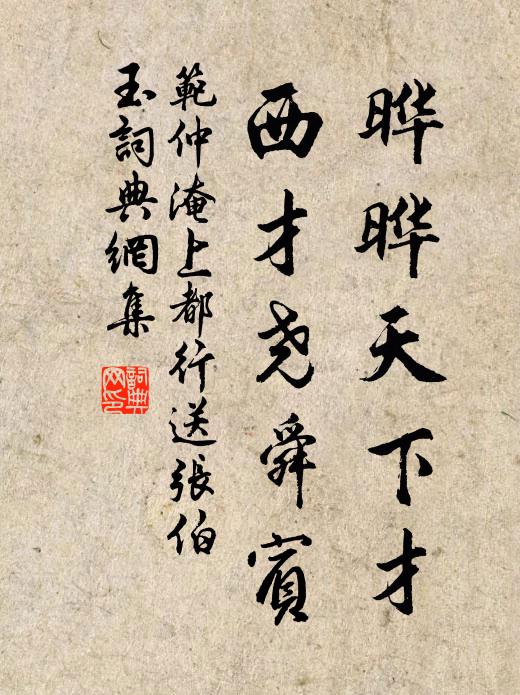 晔晔天下才
西才尧舜賓
範仲淹上都行送張伯
玉詞典網集
詞典網印